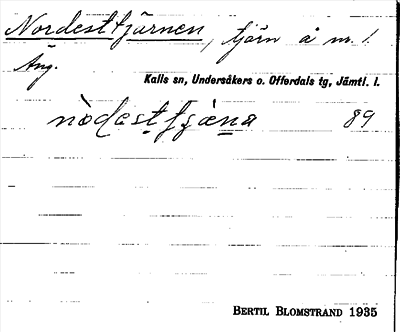 Nordesttjärnen, tjärn å nr. 1.
Äng.
Kalls sn, Undersåkers o. Offerdals tg, Jämtl. l.
nòdesttjæ̀na 89
BERTIL BLOMSTRAND 1935